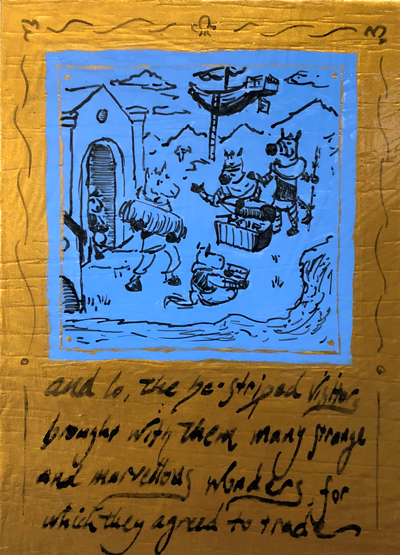 and lo, the be-striped visitors
brought with them many strange
and marvellous wonders, for
which they agreed to trade